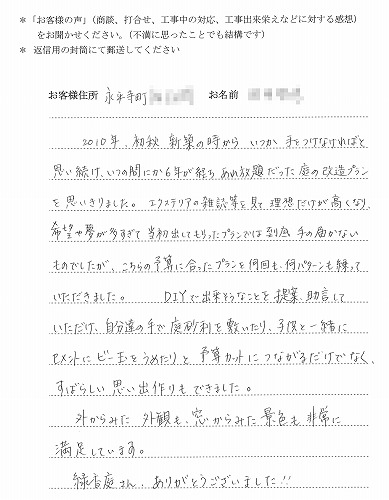 ＊「お客様の声」(商談、打合せ、工事中の対応、工事出来栄えなどに対する感想)
をお聞かせください。(不満に思ったことでも結構です)
＊ 返信用の封筒にて郵送してください
お客様住所 永平寺町 お名前
2010年、初秋 新築の時から いつか 手をつけなければと
思い続け、いつの間にか6年が経ち あれ放題だった 庭の改造プラン
を思いきりました。 エクステリアの雑誌等を見て 理想だけが高くなり、
希望や夢が多すぎて 当初出してもらったプランでは到底 手の届かない
ものでしたが、こちらの予算に合ったプランを何回も、何パターンも練って
いただきました。 DIYで出来そうなことを 提案、助言して
いただけ、自分達の手で 庭砂利を敷いたり、子供と一緒に
セメントに ビー玉をうめたりと 予算カットに つながるだけでなく、
すばらしい 思い出作りも できました。
外からみた 外観も、窓からみた 景色も 非常に
満足しています。
緑香庭さん、ありがとうございました!!